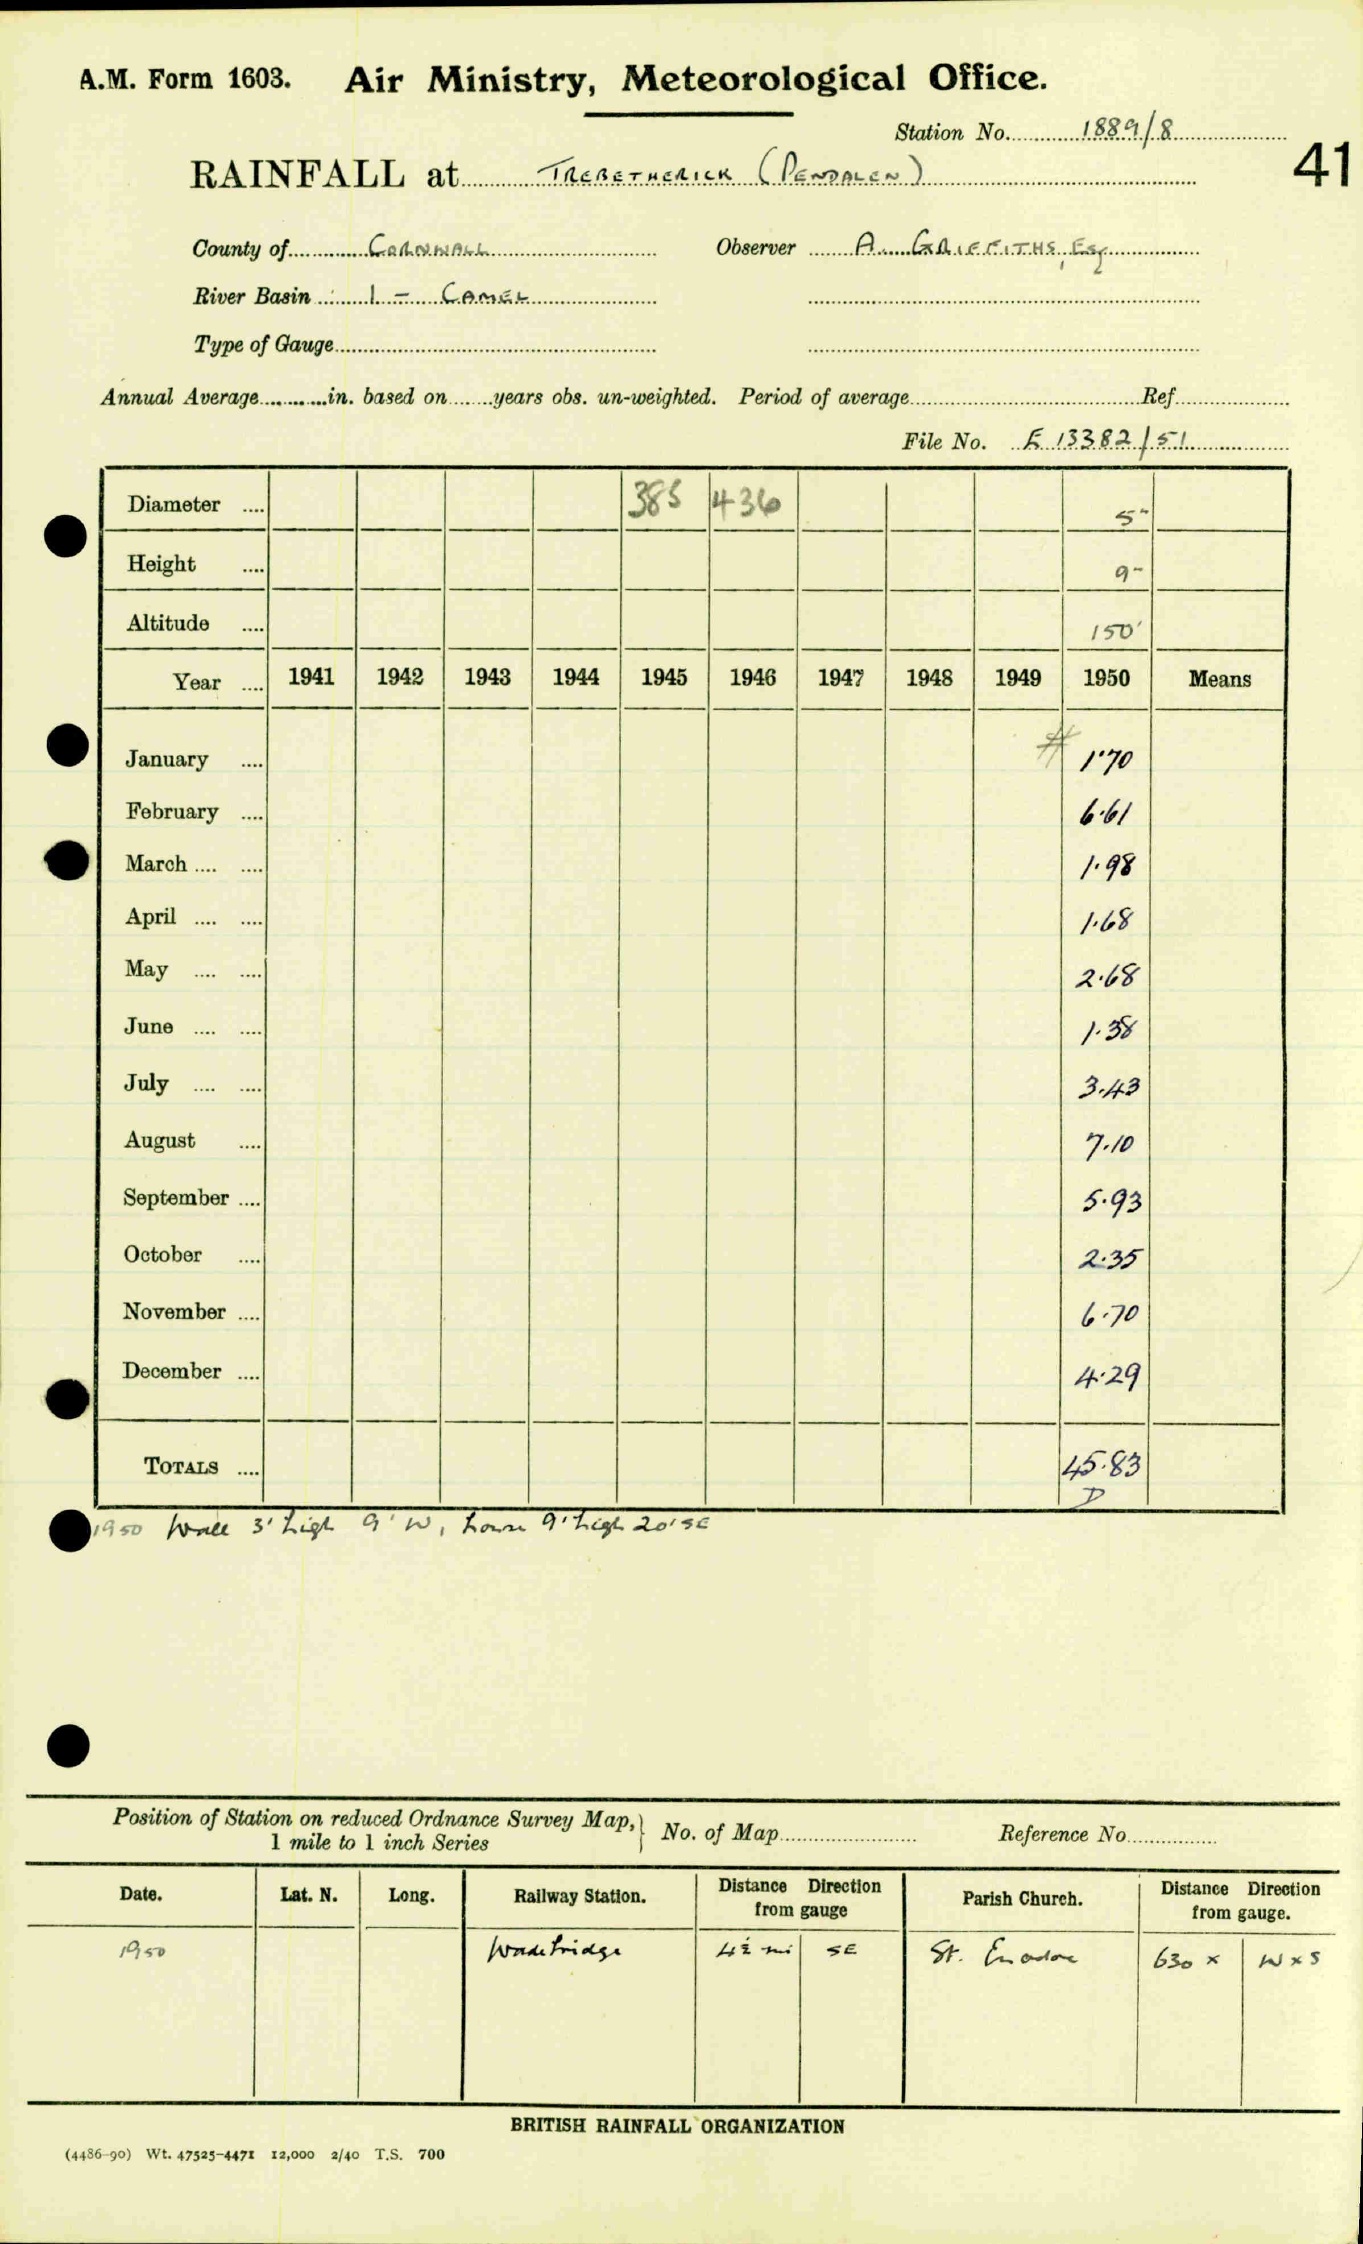 A.M. Form 1603. Air Ministry, Meteorological Office.
Station No. 1889/8
41
RAINFALL at TREBETHERICK (PENDALEN)
County of CORNWALL Observer A. GRIFFITHS, Esq
River Basin 1 - CAMEL
Type of Gauge
Annual Average in. based on years obs. un-weighted. Period of average Ref.
File No. E 13382/51
Diameter 385 436 5"
Height 9"
Altitude 150'
Year 1941 1942 1943 1944 1945 1946 1947 1948 1949 1950 Means
January # 1.70
February 6.61
March 1.98
April 1.68
May 2.68
June 1.38
July 3.43
August 7.10
September 5.93
October 2.35
November 6.70
December 4.29
TOTALS 45.83
D
1950 Wall 3' high 9' W, house 9' high 20' SE
Position of Station on reduced Ordnance Survey Map, } No. of Map Reference No.
1 mile to 1 inch Series
Date. Lat. N. Long. Railway Station. Distance Direction from gauge Parish Church. Distance Direction from gauge.
1950 Wadebridge 4½ mi SE St. Enodoc 630 x W x S
BRITISH RAINFALL ORGANIZATION
(4486-90) Wt. 47525-4471 12,000 2/40 T.S. 700